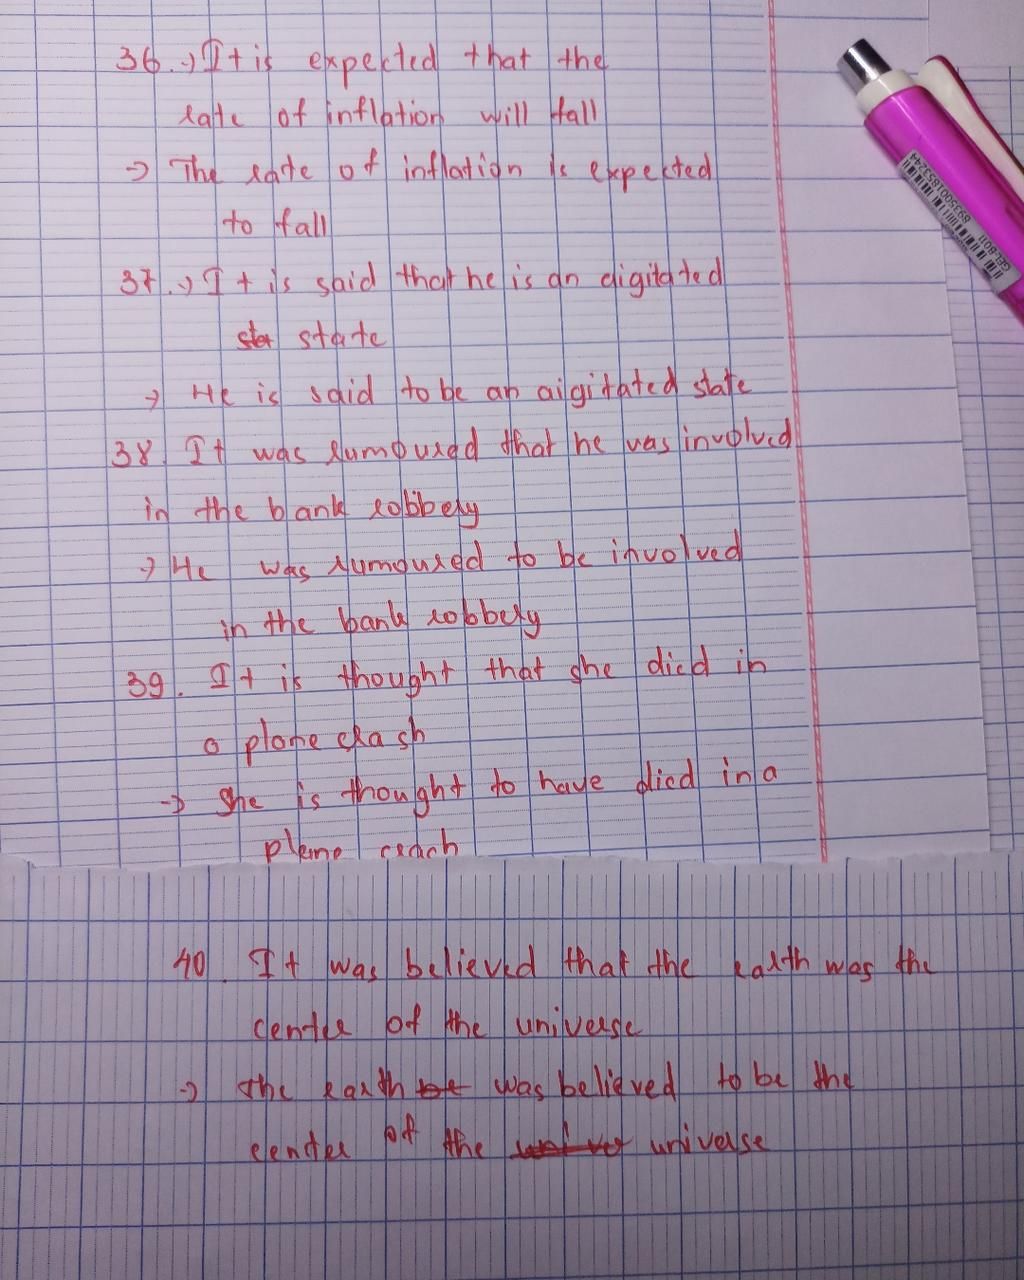 36.→ It is expected that the
rate of inflation will fall
→ The rate of inflation is expected
to fall
37.→ It is said that he is an aigitated
sta state
→ He is said to be an aigitated state
38. It was rumoured that he was involved
in the bank robbery
→ He was rumoured to be involved
in the bank robbery
39. It is thought that she died in
a plane crash
→ She is thought to have died in a
plane crach
40. It was believed that the earth was the
center of the universe
→ The earth be was believed to be the
center of the universe
8935001853244
GEL-B011